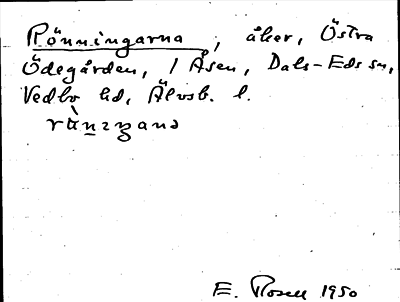 Rönningarna, åker, Östra
Ödegården, / Åsen, Dals-Eds sn,
Vedbo hd, Älvsb. l.
E. Rosell 1950